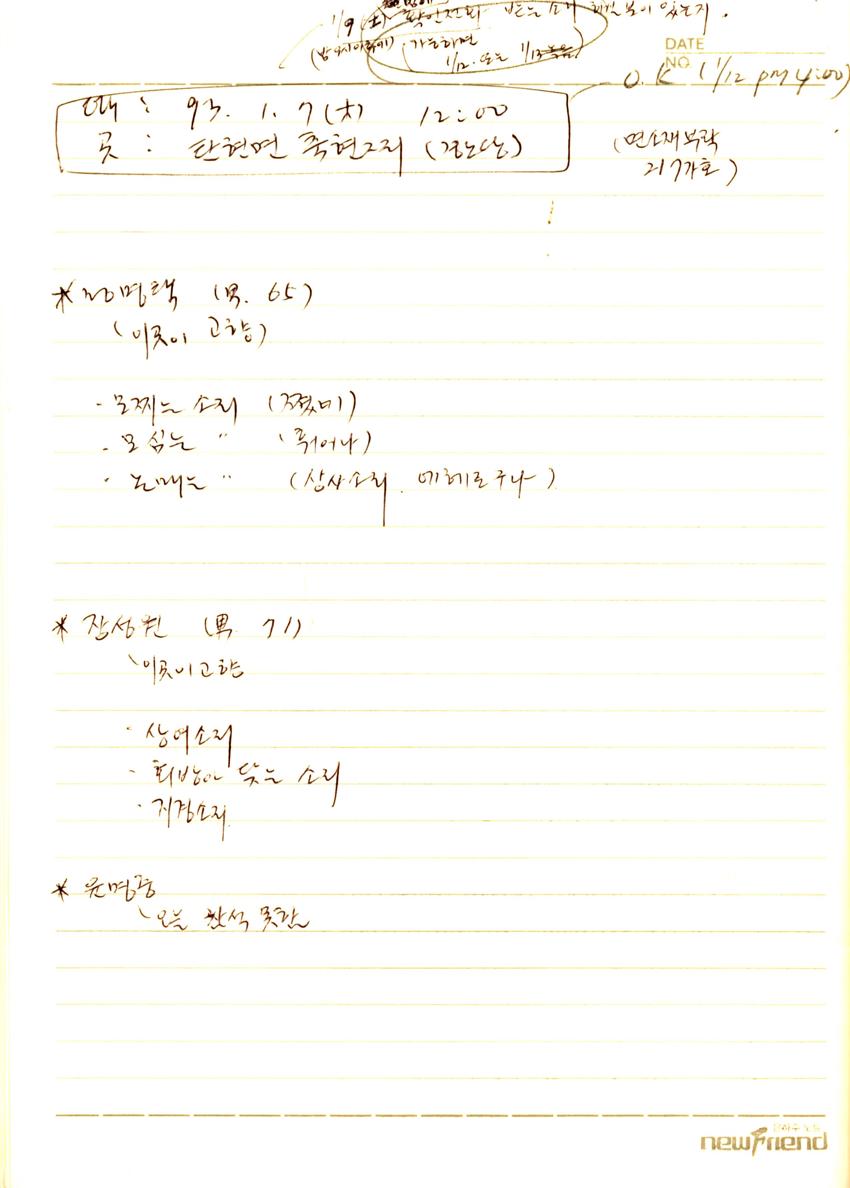 1/9 (土) 확인전화 받는소리 해줄분이 있는지.
(밤 9시이후에) (가능하면
1/12. 또는 1/13
DATE
NO
O.K (1/12 pm 4:00)
때 : 93. 1. 7 (木) 12:00
곳 : 탄현면 축현2리 (경노당)
(면소재부락
217가호)
* 정명택 (男. 65)
(이곳이 고향)
· 모찌는 소리 (쪘네)
· 모심는 〃
· 논매는 〃 (상사소리.
* 장성원 (男. 71)
이곳이고향
· 상여소리
· 회방아 닺는 소리
· 지경소리
* 윤명중
오늘 참석 못함
은하수 노트
newFriend